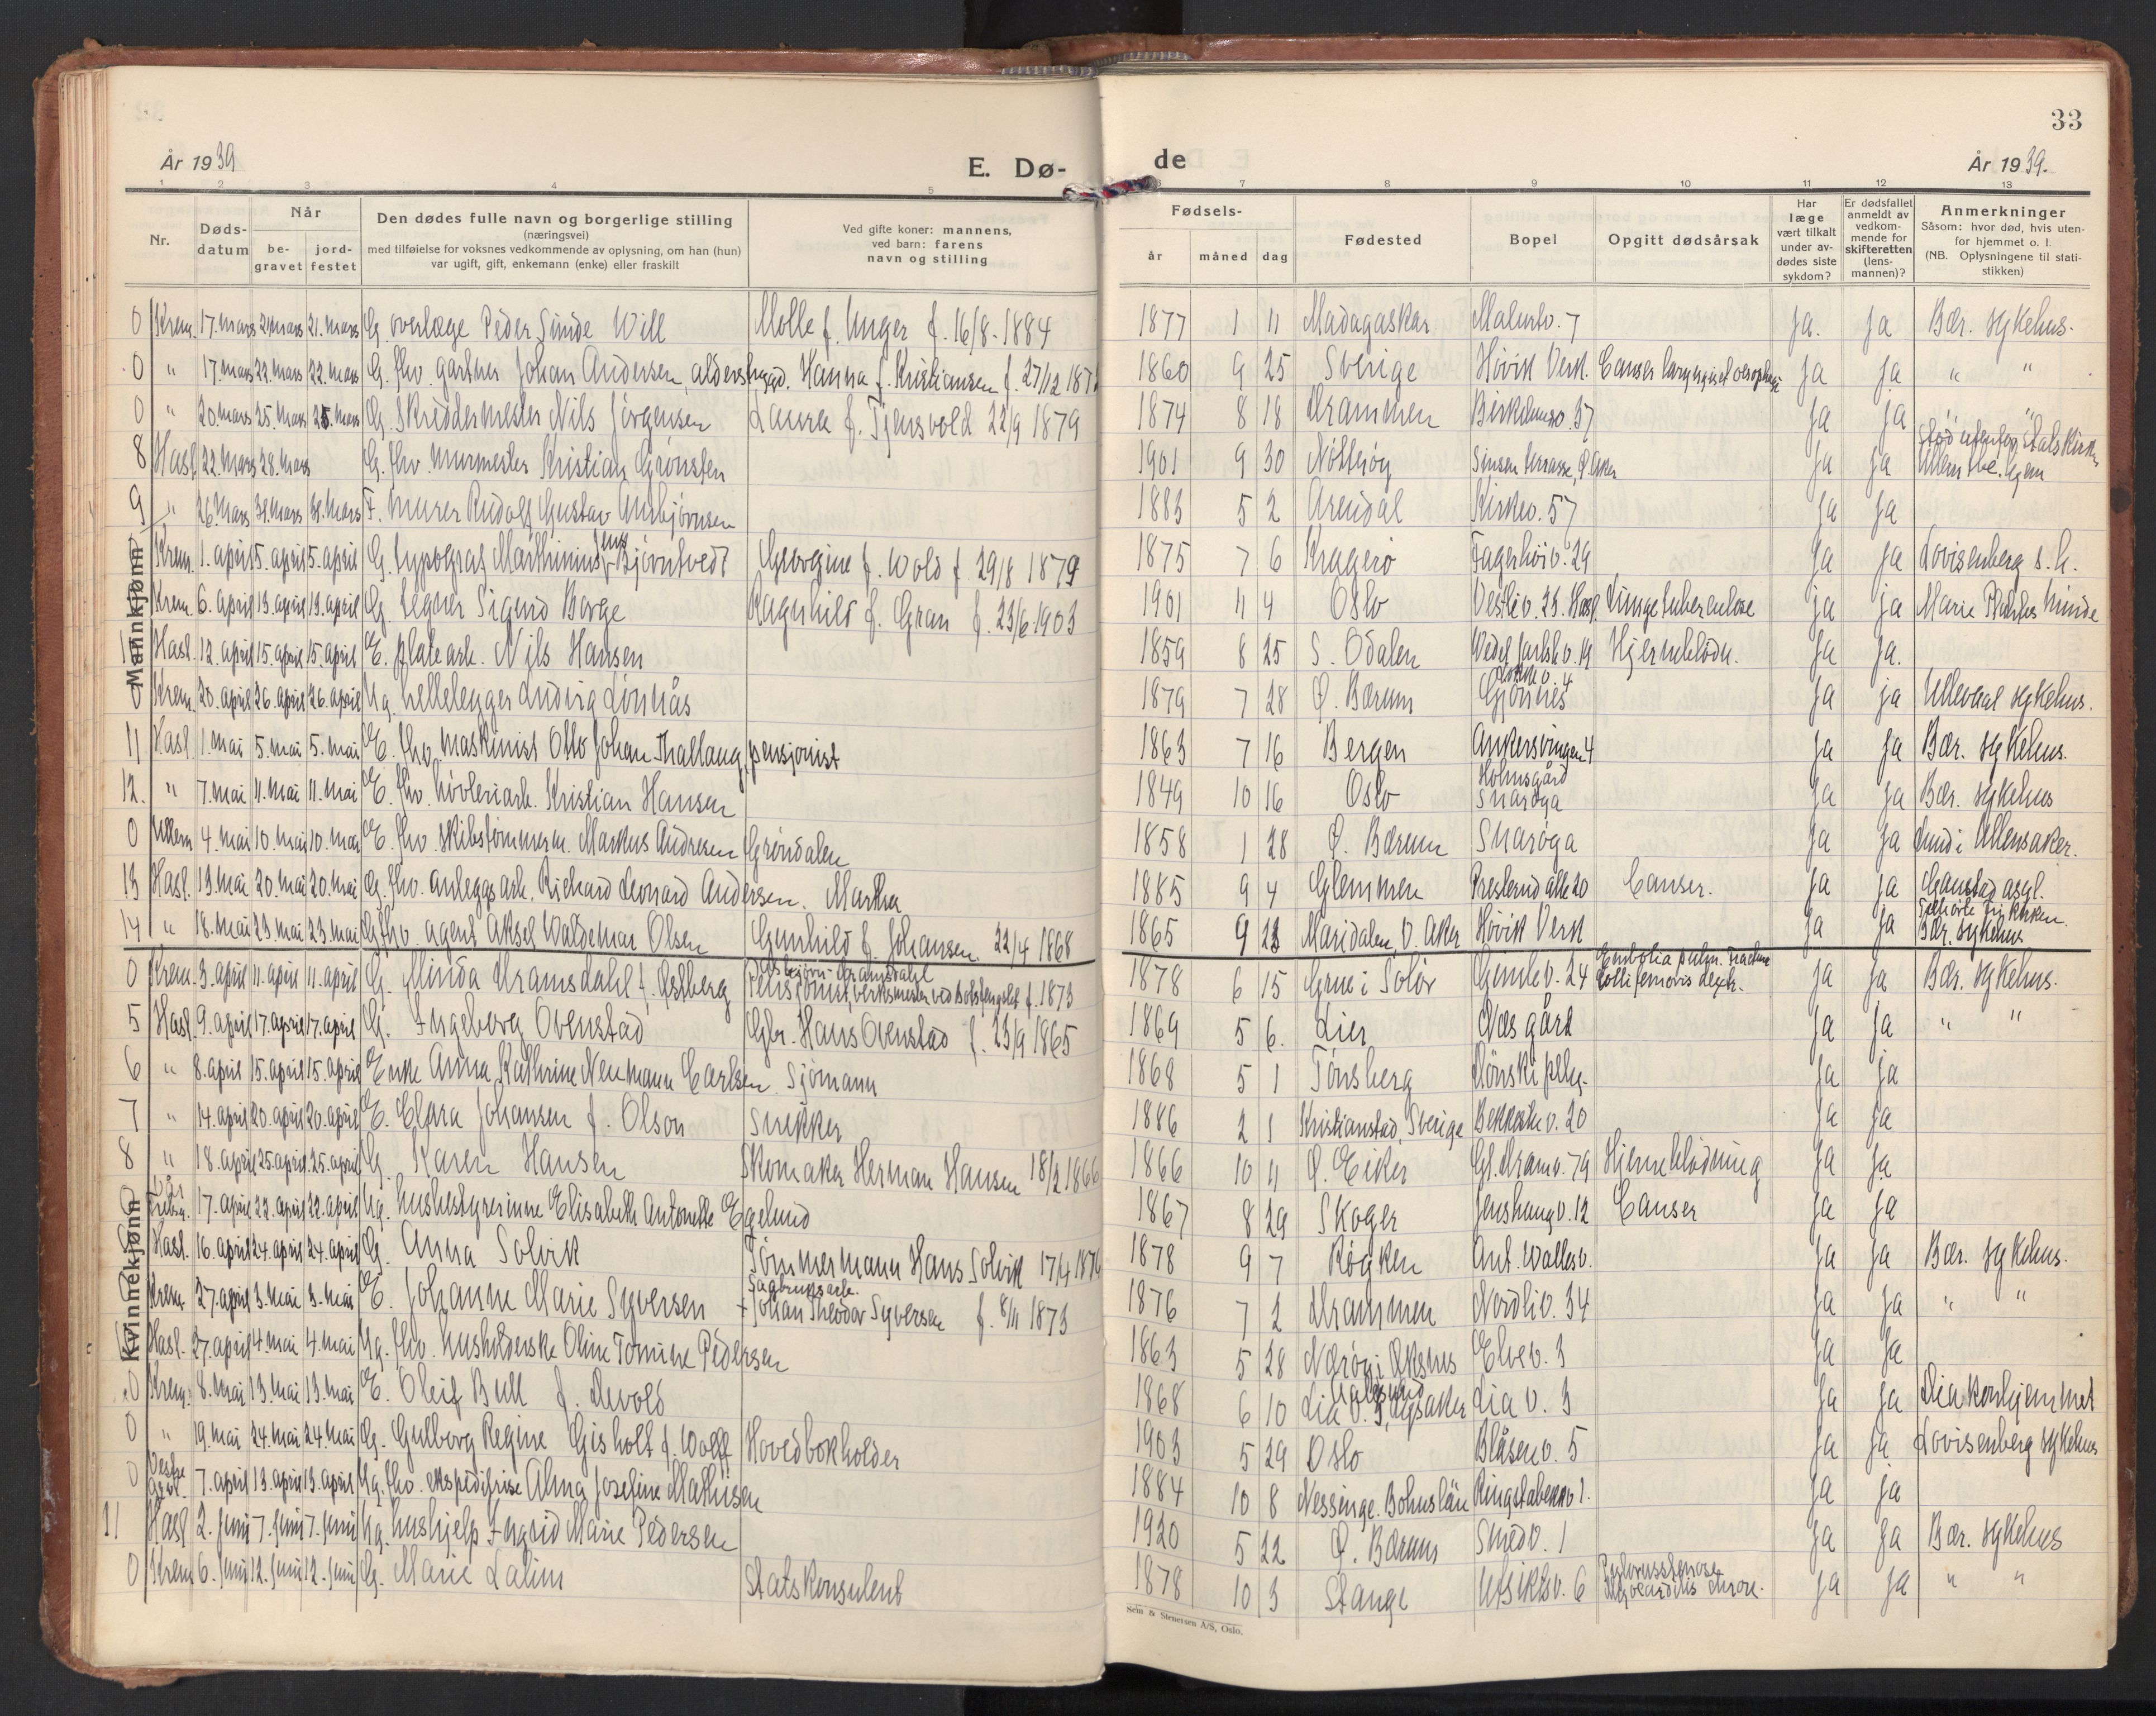 33
År 1939
E. Dø-
de
År 1939.
1 2 3 4 5
6 7 8 9 10 11 12 13
Nr.
Døds-
datum
Når
be-
gravet
jord-
festet
Den dødes fulle navn og borgerlige stilling
(næringsvei)
med tilføielse for voksnes vedkommende av oplysning, om han (hun)
var ugift, gift, enkemann (enke) eller fraskilt
Ved gifte koner: mannens,
ved barn: farens
navn og stilling
Fødsels-
år måned dag
Fødested
Bopel
Opgitt dødsårsak
Har
læge
vært tilkalt
under av-
dødes siste
sykdom?
Er dødsfallet
anmeldt av
vedkom-
mende for
skifteretten
(lens-
mannen)?
Anmerkninger
Såsom: hvor død, hvis uten-
for hjemmet o. l.
(NB. Oplysningene til stati-
stikken)
Mannkjønn
0 Krem. 17. mars 21. mars 21. mars G. overlæge Peder Sinde Will Molle f. Unger f. 16/8-1884 1877 1 11 Madagaskar Malurtv. 7 Ja. Ja Bær. sykehus.
0 " 17. mars 22. mars 22. mars G. fhv. gartner Johan Andersen, alderstrygd. Hanna f. Kristiansen f. 27/12 1860 9 25 Sverige Høvik Verk. Ja Ja " "
0 " 20. mars 25. mars 25. mars G. Skreddermester Nils Jørgensen Laura f. Tjensvold 22/9 1879 1874 8 18 Drammen 37 Ja Ja " "
8 Hasl. 22. mars 28. mars G. fhv. murmester Kristian Grønsten 1901 9 30 Nøtterøy Sinsen terrasse, Ø. Aker Ja Ja
9 " 26. mars 31. mars 31. mars F. murer Rudolf Gustav Ansbjørnsen 1883 5 2 Arendal Kirkev. 57 Ja Ja
Krem. 1. april 5. april 5. april G. typograf Marthinius Jens Bjørntvedt Georgine f. Wold f. 29/8 1879 1875 7 6 Kragerø Fagerhøiv. 29 Ja Ja Lovisenberg s.h.
Krem. 6. april 13. april 13. april G. tegner Sigurd Borge Ragnhild f. Gran f. 23/6 1903 1901 11 4 Oslo Vestliv. 23. Hasl. Lungetuberculose ja ja Marie Plahtes Minde
Hasl. 12. april 15. april 15. april E. platearb. Nils Hansen 1859 8 25 S. Odalen Wedel Jarlsb. v. 19 Hjerneblødn. Ja Ja.
0 Krem. 20. april 26. april 26. april Ug. hellelegger Ludvig Lønnås 1879 7 28 Ø. Bærum Gjønnes Ja ja Ullevaal sykehus.
11 Hasl. 1. mai 5. mai 5. mai E. fhv. maskinist Otto Johan Thallaug, pensjonist 1863 7 16 Bergen Ankersvingen 4 Ja Ja Bær. sykehus.
12. " 7. mai 11. mai 11. mai E. fhv. høvleriarb. Kristian Hansen 1849 10 16 Oslo Holmsgård Snarøya Ja Ja Bær. sykehus
0 Ullern 4. mai 10. mai 10. mai E. fhv. skibstømmerm. Markus Andresen Grøndalen 1858 1 28 Ø. Bærum Snarøya Ja Ja Lund i Ullensaker.
13 Hasl. 13. mai 20. mai 20. mai G. fhv. anleggsarb. Richard Leonard Andersen. Martha 1885 9 4 Glemmen Presterud alle 20 Canser. Ja Ja Gaustad asyl.
14 " 18. mai 23. mai 23. mai G. fhv. agent Aksel Waldemar Olsen Gunhild f. Johansen. 22/4 1868 1865 9 23 Maridalen, V. Aker Høvik Verk Ja Ja Bær. sykehus
Kvinnekjønn
0 Krem. 3. april 11. april 11. april G. Minda Dramsdahl f. Østberg Asbjørn Dramsdahl Pensjonist, verksmester ved Botsfengslet f. 1873 1878 6 15 Grue i Solør Gimlev. 24 Embolia pulm. fractura colli femoris dextr. Ja Ja Bær. sykehus.
5 Hasl. 9. april 17. april 17. april G. Ingeborg Ovenstad Gbr. Hans Ovenstad f. 23/9 1865 1869 5 6. Lier Næs gård Ja Ja " "
6 " 8. april 15. april 15. april Enke Anna Kathrine Neumann Carlsen Sjømann 1868 5 1 Tønsberg Dønski plhj. Ja ja
7 " 14. april 20. april 20. april E. Clara Johansen f. Olson Snikker 1886 2 1 Kristianstad, Sverige Bekkestu v. 20 Ja Ja
8 " 18. april 25. april 25. april G. Karen Hansen Skomaker Herman Hansen 18/2 1866 1866 10 11 Ø. Eiker Gl. Dramv. 79 Hjerneblødning Ja Ja
Vår Frels. 17. april 22. april 22. april Ug. husbestyrerinne Elisabeth Antonette Egelund 1867 8 29 Skoger Jenshaugv. 12 Canser Ja Ja
Hasl. 16. april 24. april 24. april G. Anna Solvik Tømmermann Hans Solvik 17/4 1878 9 7 Røyken Ant. Wallesv. Ja Ja Bær. sykehus.
Krem. 27. april 3. mai 3. mai E. Johanne Marie Syversen Sagbruksarb. + Johan Theodor Syversen f. 8/11 1873 1876 7 2 Drammen Nordliv. 34 Ja Ja " "
Hasl. 27. april 4. mai 4. mai Ug. fhv. husholderske Oline Tomine Pedersen 1863 5 28 Nærøy i Øksnes Elvev. 3 Ja Ja
0 Krem. 8. mai 13. mai 13. mai E. Oleif Bull f. Devold 1868 6 10 Lia v. 3, Lysaker Lia v. 3 Ja Ja Diakonhjemmet
0 " 19. mai 24. mai 24. mai G. Gulborg Regine Gisholt f. Wolff Hovedbokholder 1903 5 29 Oslo Blåsenv. 5 Ja Ja Lovisenberg sykehus
0 Vestre Grav. 7. april 13. april 13. april Ug. fhv. ekspeditrise Alma Josefine Mathisen 1884 10 8 Nessinge. Bohuslän Ringstabekkv 1. Ja ja
11 Hasl 2. juni 7. juni 7. juni Ug. hushjelp Ingrid Marie Pedersen 1920 5 22 Ø. Bærum Smedv. 1 Ja Ja Bær. sykehus
0 Krem 6. juni 12. juni 12. juni G. Marie Lalim Statskonsulent 1878 10 3 Stange Utsiktsv. 6 Pylorusstenose Myocarditis chron. Ja Ja " "
Sem & Stenersen A/S, Oslo.